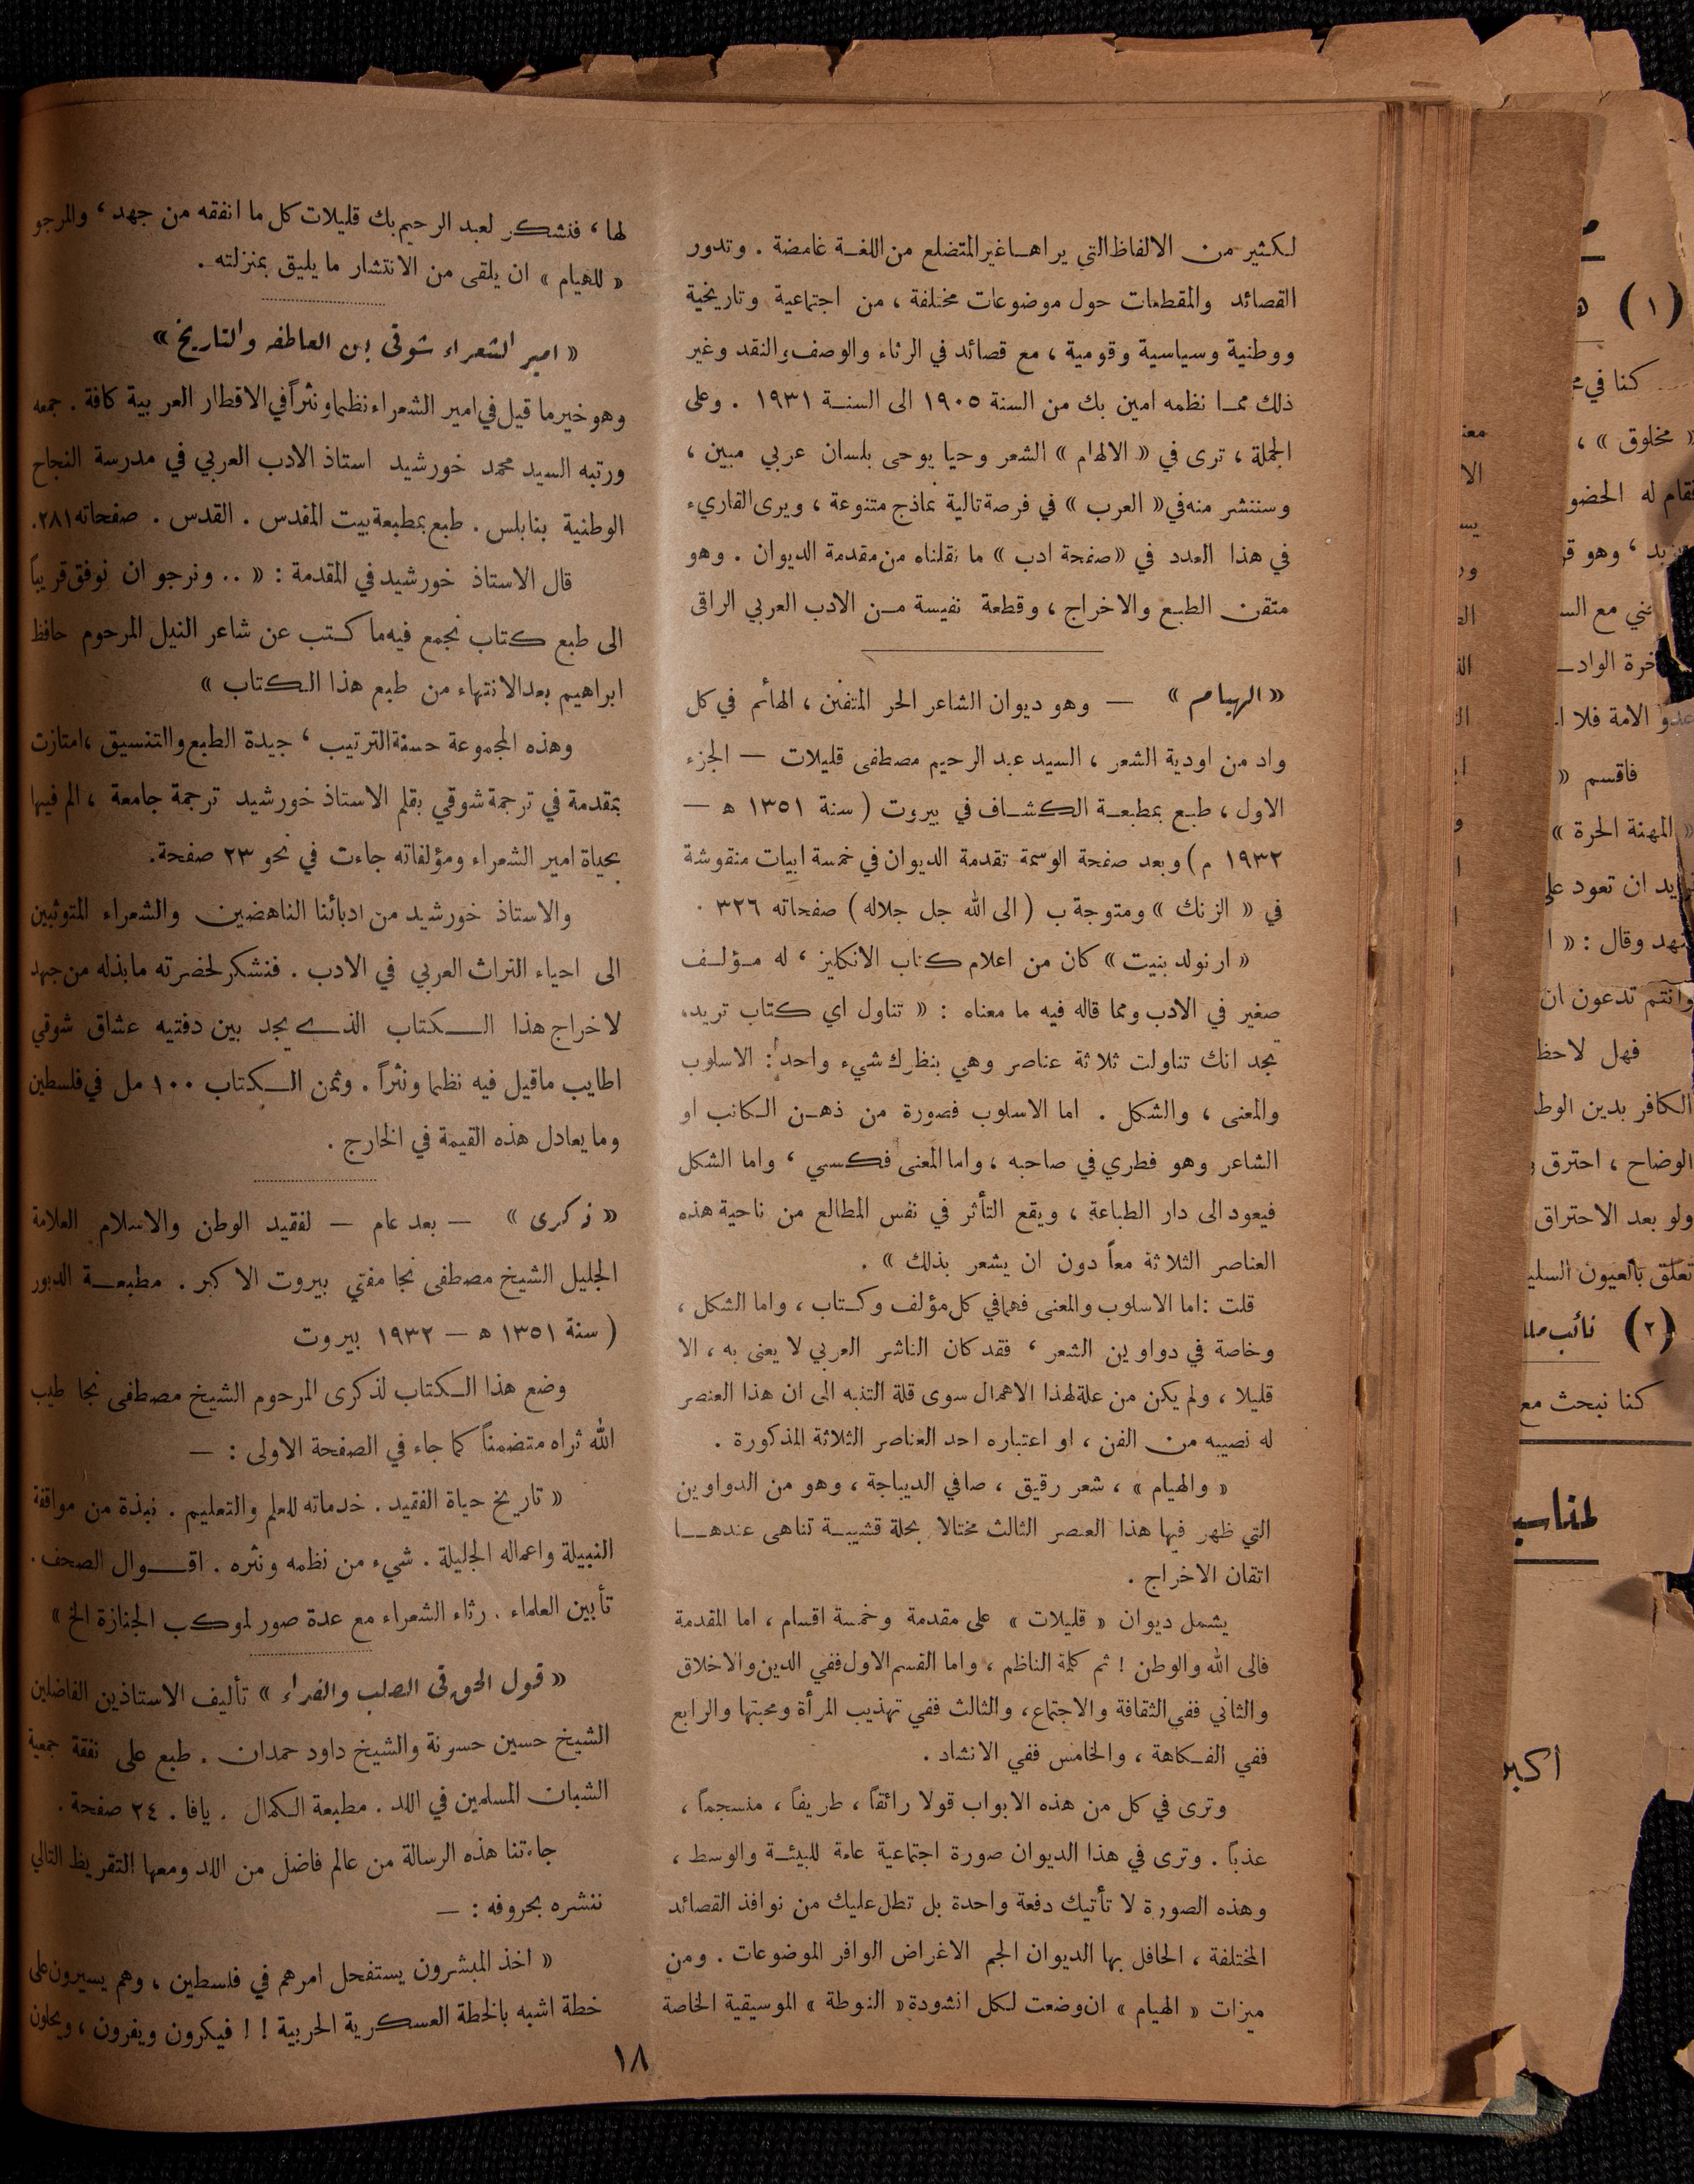 لكثير من الالفاظ التي يراها غير المتضلع من اللغة غامضة . وتدور
القصائد والمقطعات حول موضوعات مختلفة ، من اجتماعية وتاريخية
ووطنية وسياسية وقومية ، مع قصائد في الرثاء والوصف والنقد وغير
ذلك مما نظمه امين بك من السنة ١٩٠٥ الى السنة ١٩٣١ . وعلى
الجملة ، ترى في « الالهام » الشعر وحيا يوحى بلسان عربي مبين ،
وسننشر منه في « العرب » في فرصة تالية نماذج متنوعة ، ويرى القاريء
في هذا العدد في « صفحة ادب » ما نقلناه من مقدمة الديوان . وهو
متقن الطبع والاخراج ، وقطعة نفيسة من الادب العربي الراقى
« الهيام » — وهو ديوان الشاعر الحر المتفنن ، الهائم في كل
واد من اودية الشعر ، السيد عبد الرحيم مصطفى قليلات — الجزء
الاول ، طبع بمطبعة الكشاف في بيروت ( سنة ١٣٥١ ه —
١٩٣٢ م ) وبعد صفحة الوسمة تقدمة الديوان في خمسة ابيات منقوشة
في « الزنك » ومتوجة ب ( الى الله جل جلاله ) صفحاته ٣٢٦ .
« ارنولد بنيت » كان من اعلام كتاب الانكليز ، له مؤلف
صغير في الادب ومما قاله فيه ما معناه : « تناول اي كتاب تريد،
تجد انك تناولت ثلاثة عناصر وهي بنظرك شيء واحد : الاسلوب
والمعنى ، والشكل . اما الاسلوب فصورة من ذهن الكاتب او
الشاعر وهو فطري في صاحبه ، واما المعنى فكسبي ، واما الشكل
فيعود الى دار الطباعة ، ويقع التأثر في نفس المطالع من ناحية هذه
العناصر الثلاثة معاً دون ان يشعر بذلك » .
قلت : اما الاسلوب والمعنى فهما في كل مؤلف وكتاب ، واما الشكل ،
وخاصة في دواوين الشعر ، فقد كان الناشر العربي لا يعنى به ، الا
قليلا ، ولم يكن من علة لهذا الاهمال سوى قلة التنبه الى ان هذا العنصر
له نصيبه من الفن ، او اعتباره احد العناصر الثلاثة المذكورة .
« والهيام » ، شعر رقيق ، صافي الديباجة ، وهو من الدواوين
التي ظهر فيها هذا العنصر الثالث مختالا بحلة قشيبة تناهى عندها
اتقان الاخراج .
يشمل ديوان « قليلات » على مقدمة وخمسة اقسام ، اما المقدمة
فالى الله والوطن ! ثم كلمة الناظم ، واما القسم الاول ففي الدين والاخلاق
والثاني ففي الثقافة والاجتماع ، والثالث ففي تهذيب المرأة ومحبتها والرابع
ففي الفكاهة ، والخامس ففي الانشاد .
وترى في كل من هذه الابواب قولا رائقاً ، طريفاً ، منسجماً ،
عذباً . وترى في هذا الديوان صورة اجتماعية عامة للبيئة والوسط ،
وهذه الصورة لا تأتيك دفعة واحدة بل تطل عليك من نوافذ القصائد
المختلفة ، الحافل بها الديوان الجم الاغراض الوافر الموضوعات . ومن
ميزات « الهيام » ان وضعت لكل انشودة « النوطة » الموسيقية الخاصة
لها ، فنشكر لعبد الرحيم بك قليلات كل ما انفقه من جهد ، والمرجو
« للهيام » ان يلقى من الانتشار ما يليق بمنزلته .
« امير الشعراء شوقي بين العاطفة والتاريخ »
وهو خير ما قيل في امير الشعراء نظما ونثراً في الاقطار العربية كافة . جمعه
ورتبه السيد محمد خورشيد استاذ الادب العربي في مدرسة النجاح
الوطنية بنابلس . طبع بمطبعة بيت المقدس . القدس . صفحاته ٢٨١.
قال الاستاذ خورشيد في المقدمة : « .. ونرجو ان نوفق قريباً
الى طبع كتاب نجمع فيه ما كتب عن شاعر النيل المرحوم حافظ
ابراهيم بعد الانتهاء من طبع هذا الكتاب »
وهذه المجموعة حسنة الترتيب ، جيدة الطبع والتنسيق ، امتازت
بمقدمة في ترجمة شوقي بقلم الاستاذ خورشيد ترجمة جامعة ، الم فيها
بحياة امير الشعراء ومؤلفاته جاءت في نحو ٢٣ صفحة.
والاستاذ خورشيد من ادبائنا الناهضين والشعراء المتوثبين
الى احياء التراث العربي في الادب . فنشكر لحضرته ما بذله من جهد
لاخراج هذا الكتاب الذي يجد بين دفتيه عشاق شوقي
اطايب ما قيل فيه نظما ونثراً . وثمن الكتاب ١٠٠ مل في فلسطين
وما يعادل هذه القيمة في الخارج .
« ذكرى » — بعد عام — لفقيد الوطن والاسلام العلامة
الجليل الشيخ مصطفى نجا مفتي بيروت الاكبر . مطبعة الدبور
( سنة ١٣٥١ ه — ١٩٣٢ بيروت
وضع هذا الكتاب لذكرى المرحوم الشيخ مصطفى نجا طيب
الله ثراه متضمناً كما جاء في الصفحة الاولى : —
« تاريخ حياة الفقيد . خدماته للعلم والتعليم . نبذة من مواقفة
النبيلة واعماله الجليلة . شيء من نظمه ونثره . اقوال الصحف .
تأبين العلماء . رثاء الشعراء مع عدة صور لموكب الجنازة الخ »
« قول الحق في الصلب والفداء » تأليف الاستاذين الفاضلين
الشيخ حسين حسونة والشيخ داود حمدان . طبع على نفقة جمعية
الشبان المسلمين في اللد . مطبعة الكمال . يافا . ٢٤ صفحة .
جاءتنا هذه الرسالة من عالم فاضل من اللد ومعها التقريظ التالي
ننشره بحروفه : —
« اخذ المبشرون يستفحل امرهم في فلسطين ، وهم يسيرون على
خطة اشبه بالخطة العسكرية الحربية ! ! فيكرون ويفرون ،
١٨
( ١ )
كنا في
« مخلوق » ،
فقام له الحضو
، وهو
مع
فاقسم «
المهنة الحرة »
ان تعود
وقال : «
وانتم تدعون ان
فهل لاحظ
الكافر بدين
الوضاح ، احترق
ولو بعد الاحتراق
تعلق بالعيون
( ٢ ) نائب
كنا نبحث مع